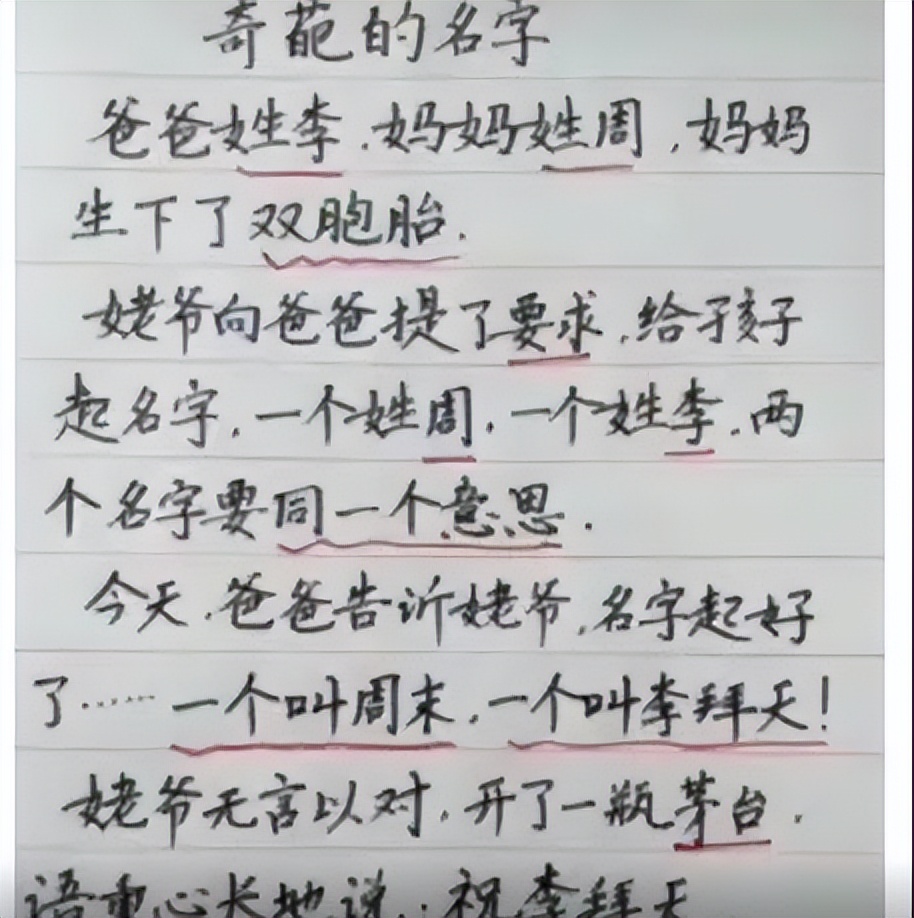 奇葩的名字
爸爸姓李，妈妈姓周，妈妈
生下了双胞胎.
姥爷向爸爸提了要求，给孩子
起名字，一个姓周，一个姓李，两
个名字要同一个意思.
今天，爸爸告诉姥爷，名字起好
了……一个叫周末，一个叫李拜天!
姥爷无言以对，开了一瓶茅台，
语重心长地说：祝李拜天